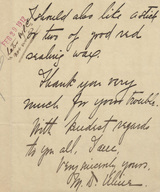 I should also like a stick
or two of good red
sealing wax.
Thank you very
much for your trouble.
With kindest regards
to you all, I am
Very sincerely yours,
M. D.